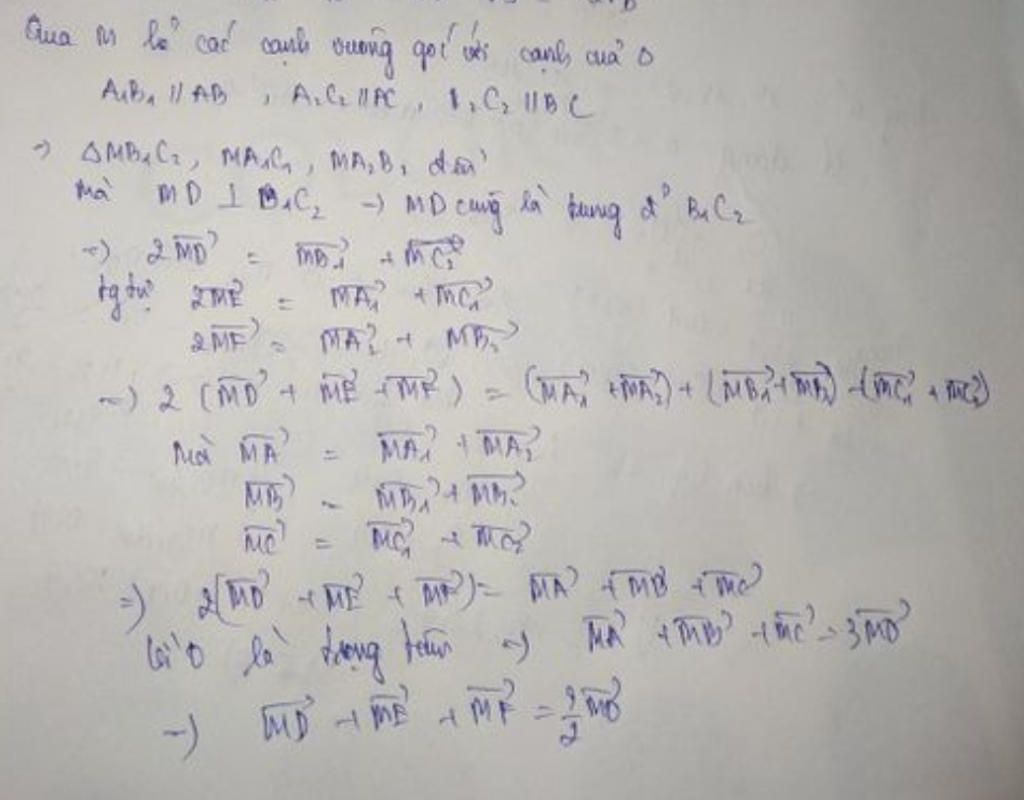 Qua M kẻ các cạnh vuông góc với cạnh của Δ
A₁B₁ // AB , A₂C₂ // AC , B₂C₂ // BC
→ ΔMB₁C₂, MA₁C₁, MA₂B₂ đều
Mà MD ⊥ B₁C₂ → MD cũng là trung đ⁰ B₁C₂
→ 2MD⃗ = MB₁⃗ + MC₂⃗
tg tự 2ME⃗ = MA₁⃗ + MC₁⃗
2MF⃗ = MA₂⃗ + MB₂⃗
→ 2 (MD⃗ + ME⃗ + MF⃗) = (MA₁⃗ + MA₂⃗) + (MB₁⃗ + MB₂⃗) + (MC₁⃗ + MC₂⃗)
Mà MA⃗ = MA₁⃗ + MA₂⃗
MB⃗ = MB₁⃗ + MB₂⃗
MC⃗ = MC₁⃗ + MC₂⃗
⇒ 2(MD⃗ + ME⃗ + MF⃗) = MA⃗ + MB⃗ + MC⃗
O là trọng tâm → MA⃗ + MB⃗ + MC⃗ = 3MO⃗
→ MD⃗ + ME⃗ + MF⃗ = 3/2 MO⃗